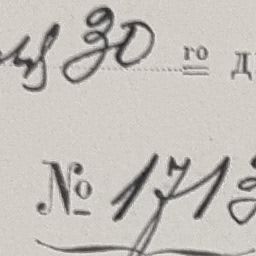 30 го д
№ 1713